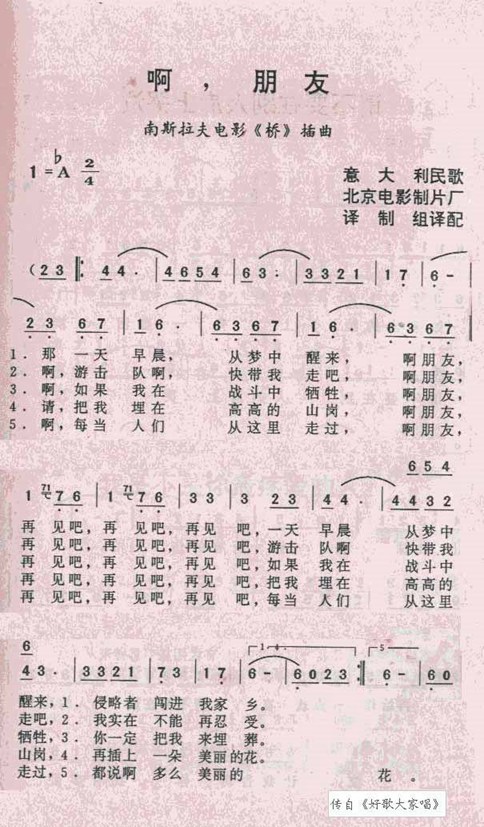 啊，朋友
南斯拉夫电影《桥》插曲
1=♭A 2/4
意大利民歌
北京电影制片厂
译制组译配
(23 ‖: 44. | 4654 | 63. | 3321 | 17 | 6- |
23 67 | 16. | 6367 | 16. | 6367 |
1. 那一天 早晨， 从梦中 醒来， 啊朋友，
2. 啊，游击 队啊， 快带我 走吧， 啊朋友，
3. 啊，如果 我在 战斗中 牺牲， 啊朋友，
4. 请，把我 埋在 高高的 山岗， 啊朋友，
5. 啊，每当 人们 从这里 走过， 啊朋友，
654
1 76 | 1 76 | 33 3 | 23 | 44. | 4432
再 见吧，再 见吧，再见 吧，一天 早晨 从梦中
再 见吧，再 见吧，再见 吧，游击 队啊 快带我
再 见吧，再 见吧，再见 吧，如果 我在 战斗中
再 见吧，再 见吧，再见 吧，把我 埋在 高高的
再 见吧，再 见吧，再见 吧，每当 人们 从这里
6 1.-4. 5.
43. | 3321 | 73 | 17 | 6- | 6023 :‖ 6- | 60
醒来，1. 侵略者 闯进 我家 乡。
走吧，2. 我实在 不能 再忍 受。
牺牲，3. 你一定 把我 来埋 葬。
山岗，4. 再插上 一朵 美丽的 花。
走过，5. 都说啊 多么 美丽的 花。
传自《好歌大家唱》